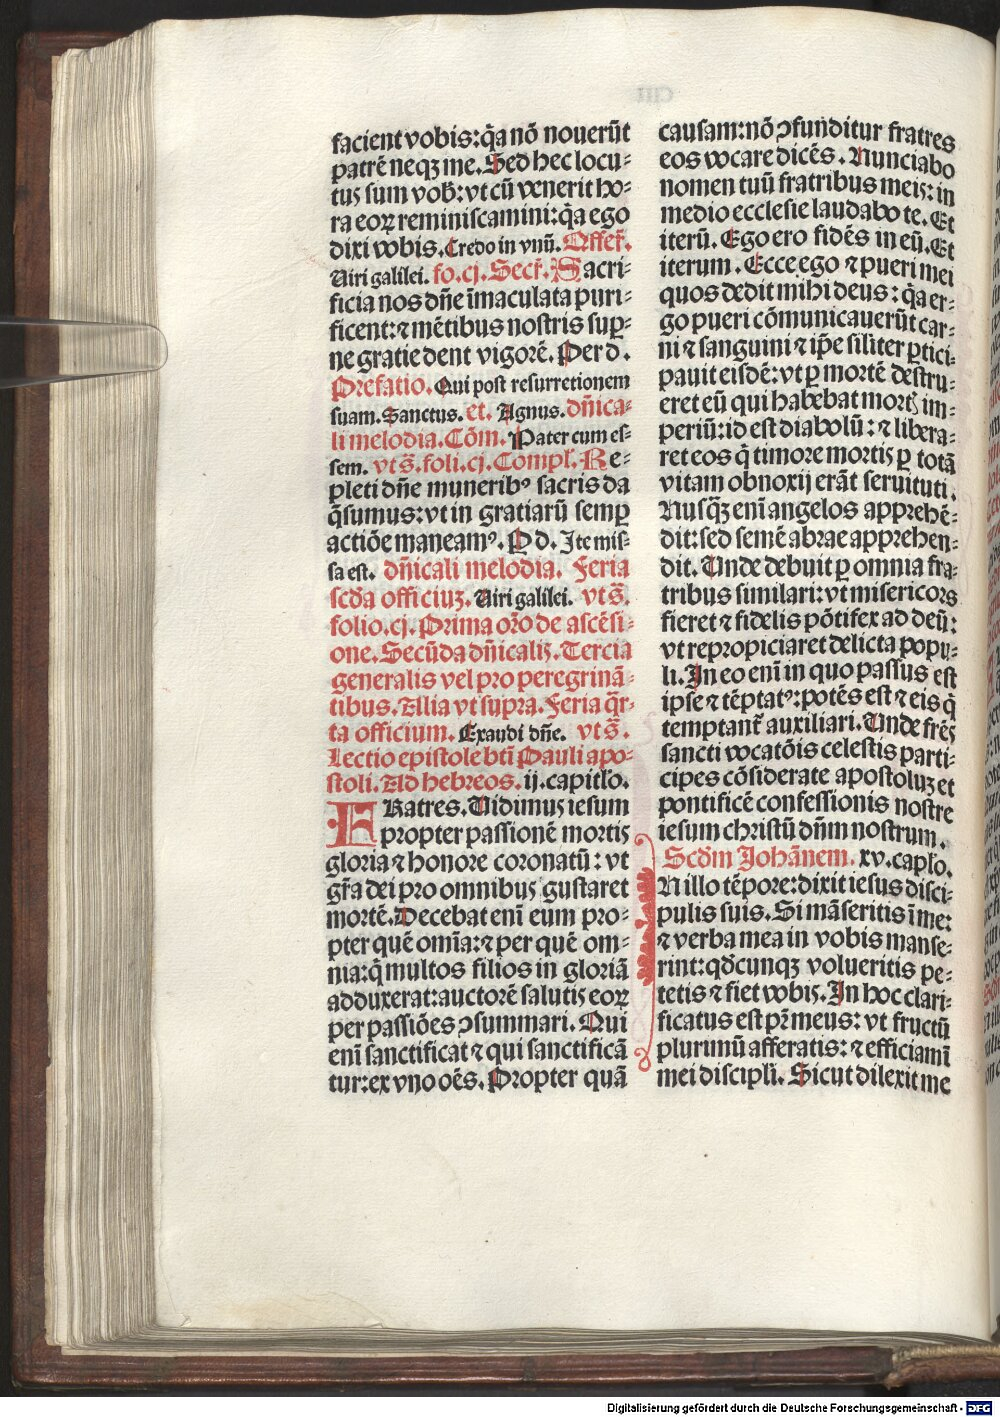 facient vobis: q̄a nō nouerūt
patrē neqꝫ me. Sed hec locu⸗
tus sum vob̄: vt cū venerit ho⸗
ra eoꝝ reminiscamini: q̄a ego
dixi vobis. Credo in vnū. Offer̄.
Uiri galilei. fo. cj. Secr̄. Sacri⸗
ficia nos dn̄e īmaculata puri⸗
ficent: ⁊ mētibus nostris suꝑ⸗
ne gratie dent vigorē. Per d.
Prefatio. Qui post resurretionem
suam. Sanctus. et. Agnus. dn̄ica⸗
li melodia. Cōm. Pater cum es⸗
sem. vt s̄. foli. cj. Compl̄. Re⸗
pleti dn̄e muneribꝰ sacris da
q̄sumus: vt in gratiarū semꝑ
actiōe maneamꝰ. P d. Ite mis⸗
sa est. dn̄icali melodia. Feria
scd̄a officiuꝫ. Uiri galilei. vt s̄.
folio. cj. Prima or̄o de ascēsi⸗
one. Secūda dn̄icalis. Tercia
generalis vel pro peregrinā⸗
tibus. Allia vt supra. Feria q̄r⸗
ta officium. Exaudi dn̄e. vt s̄.
Lectio epistole bt̄i Pauli apo⸗
stoli. Ad hebreos. ij. capitl̄o.
FRatres. Uidimus iesum
propter passionē mortis
gloria ⁊ honore coronatū: vt
gr̄a dei pro omnibus gustaret
mortē. Decebat enī eum pro⸗
pter quē omīa: ⁊ per quē om⸗
nia: q̄ multos filios in gloriā
adduxerat: auctorē salutis eoꝝ
per passiōes ꝯsummari. Qui
enī sanctificat ⁊ qui sanctificā
tur: ex vno oēs. Propter quā
causam: nō ꝯfunditur fratres
eos vocare dicēs. Nunciabo
nomen tuū fratribus meis: in
medio ecclesie laudabo te. Et
iterū. Ego ero fidēs in eū. Et
iterum. Ecce ego ⁊ pueri mei
quos dedit mihi deus: q̄a er⸗
go pueri cōmunicauerūt car⸗
ni ⁊ sanguini ⁊ ip̄e siliter ꝑtici⸗
pauit eisdē: vt ꝑ mortē destru⸗
eret eū qui habebat mortꝭ im⸗
periū: id est diabolū: ⁊ libera⸗
ret eos q̄ timore mortis ꝑ totā
vitam obnoxij erāt seruituti.
Nusq̄ꝫ enī angelos apprehē⸗
dit: sed semē abrae apprehen⸗
dit. Unde debuit ꝑ omnia fra⸗
tribus similari: vt misericors
fieret ⁊ fidelis pōtifex ad deū:
vt repropiciaret delicta popu⸗
li. In eo enī in quo passus est
ipse ⁊ tēptatꝰ: potēs est ⁊ eis q̄
temptant̄ auxiliari. Unde frēs
sancti vocatōis celestis parti⸗
cipes cōsiderate apostoluꝫ et
pontificē confessionis nostre
iesum christū dn̄m nostrum.
Scdm̄ Johānem. xv. capl̄o.
IN illo tēpore: dixit iesus disci⸗
pulis suis. Si māseritis ī me:
⁊ verba mea in vobis manse⸗
rint: qd̄cunqꝫ volueritis pe⸗
tetis ⁊ fiet vobis. In hoc clari⸗
ficatus est pr̄ meus: vt fructū
plurimū afferatis: ⁊ efficiamī
mei discipl̄i. Sicut dilexit me
Digitalisierung gefördert durch die Deutsche Forschungsgemeinschaft - DFG